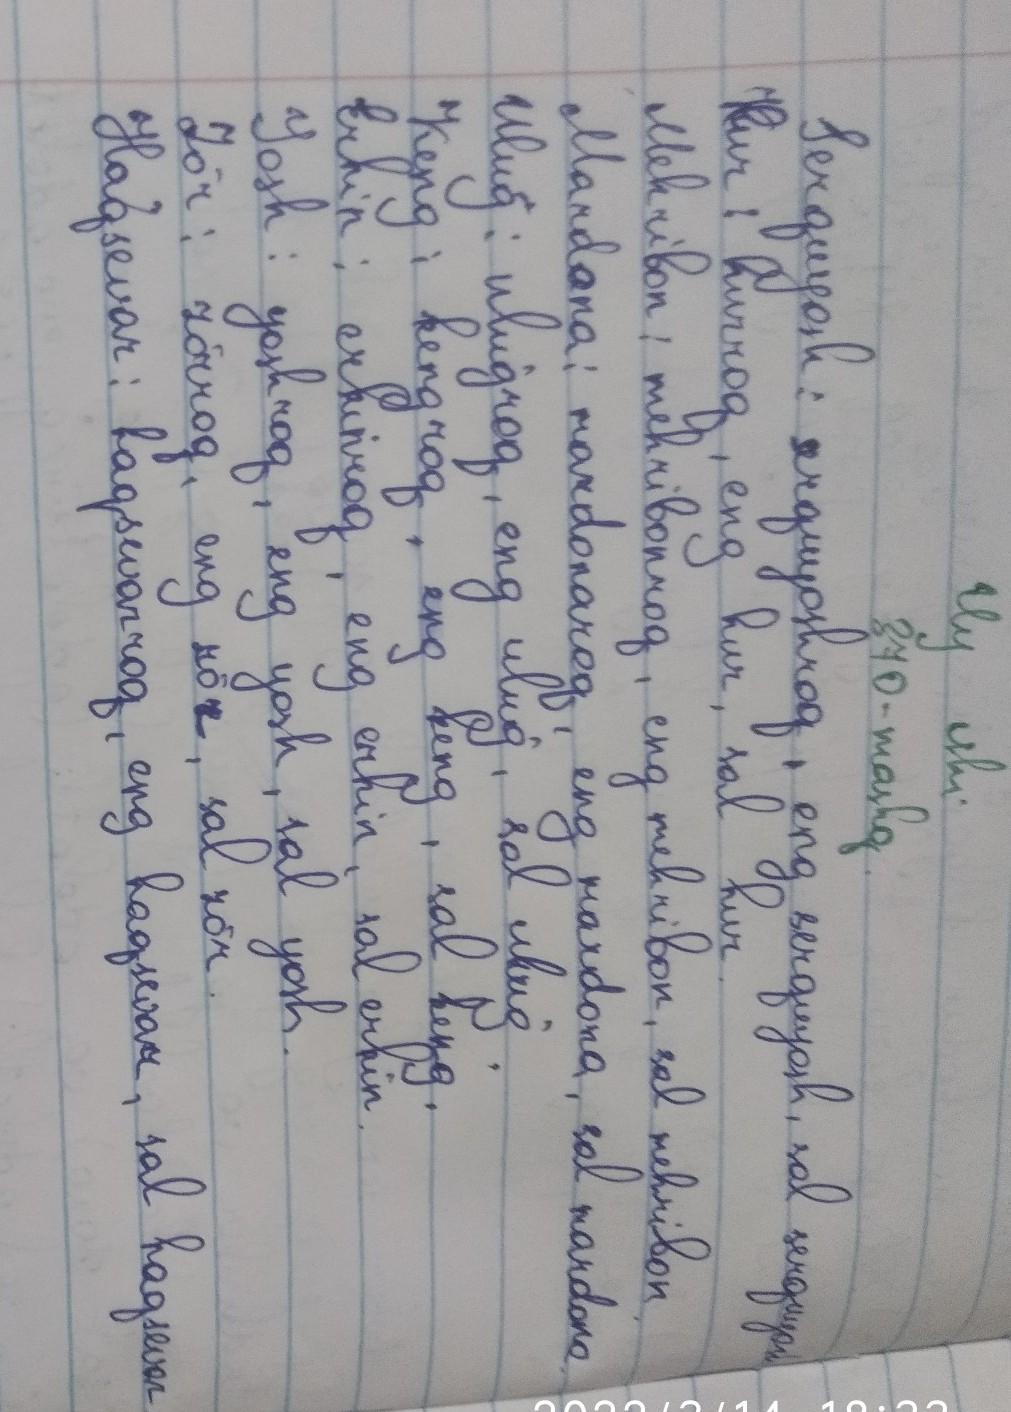 Uy ishi.
370-mashq.
Serquyosh: serquyoshroq, eng serquyosh, sal serquyosh
Hur: hurroq, eng hur, sal hur.
Mehribon: mehribonroq, eng mehribon, sal mehribon.
Mardona: mardonaroq, eng mardona, sal mardona.
Ulug': ulug'roq, eng ulug', sal ulug'.
Keng: kengroq, eng keng, sal keng.
Erkin: erkinroq, eng erkin, sal erkin.
Yosh: yoshroq, eng yosh, sal yosh.
Zõr: zõrroq, eng zõr, sal zõr.
Haqsevar: haqsevarroq, eng haqsevar, sal haqsevar